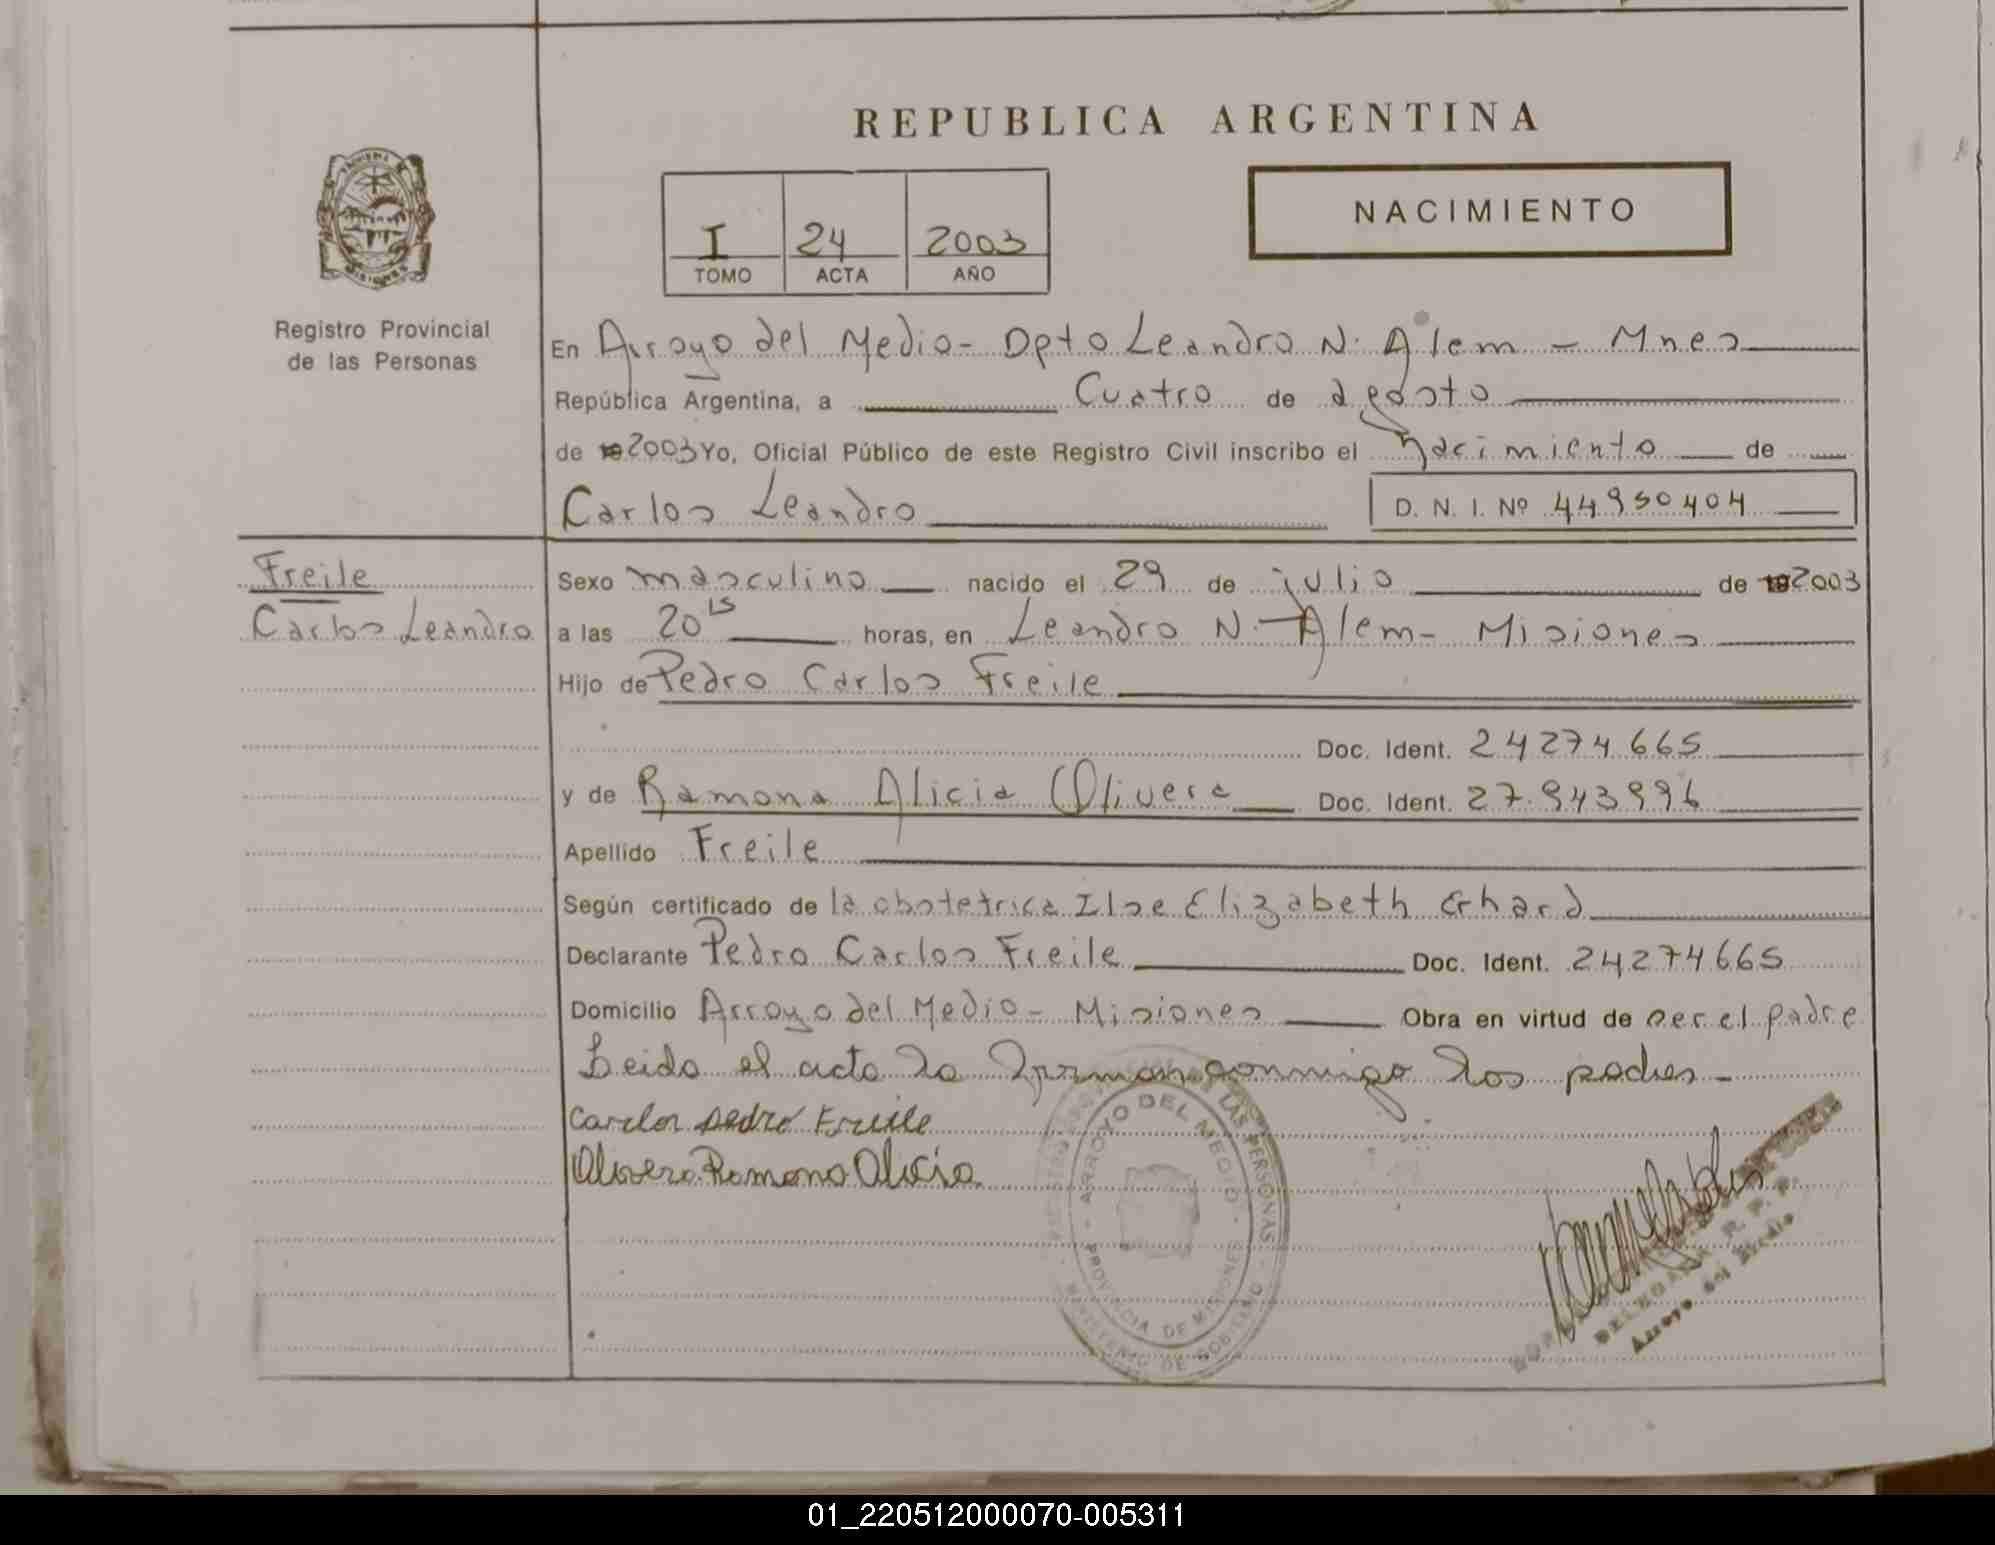 REPUBLICA ARGENTINA
NACIMIENTO
I 24 2003
TOMO ACTA AÑO
Registro Provincial
de las Personas
En Arroyo del Medio - Dpto Leandro N. Alem - Mnes
República Argentina, a Cuatro de agosto
de 19 2003 Yo, Oficial Público de este Registro Civil inscribo el Nacimiento de
Carlos Leandro D. N. I. Nº 44950404
Freile
Carlos Leandro
Sexo masculino nacido el 29 de julio de 19 2003
a las 20 15 horas, en Leandro N. Alem - Misiones
Hijo de Pedro Carlos Freile
Doc. Ident. 24274665
y de Ramona Alicia Olivera Doc. Ident. 27.943996
Apellido Freile
Según certificado de la obstetrica Ilse Elizabeth Erhard
Declarante Pedro Carlos Freile Doc. Ident. 24274665
Domicilio Arroyo del Medio - Misiones Obra en virtud de ser el padre
Leido el acta la firman conmigo los padres -
Carlos Pedro Freile
Olivera Ramona Alicia
LAS PERSONAS
ARROYO DEL MEDIO
PROVINCIA DE MISIONES
MINISTERIO DE GOBIERNO
R. P. P.
Arroyo del Medio
01_220512000070-005311